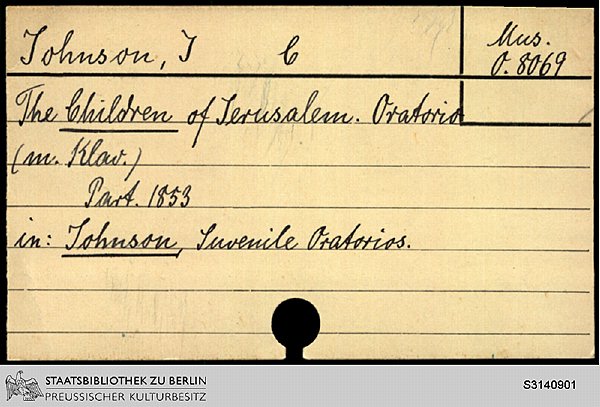 Johnson, J C
Mus.
O. 8069
The Children of Jerusalem. Oratorio
(m. Klav.)
Part. 1853
in: Johnson, Juvenile Oratorios.
STAATSBIBLIOTHEK ZU BERLIN
PREUSSISCHER KULTURBESITZ
S3140901